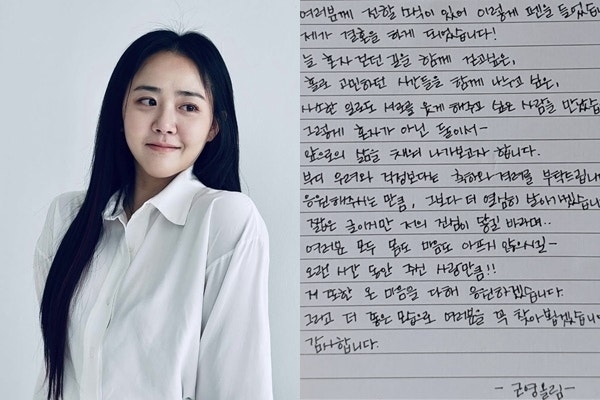 여러분께 전할 소식이 있어 이렇게 펜을 들었습니
제가 결혼을 하게 되었습니다!
늘 혼자 걷던 길을 함께 걷고싶은,
홀로 고민하던 시간들을 함께 나누고 싶은,
사소한 일로도 서로를 웃게 해주고 싶은 사람을 만났습
그렇게 혼자가 아닌 둘이서-
앞으로의 삶을 채워 나가보고자 합니다.
부디 우려와 걱정보다는 축하와 격려를 부탁드립니
응원해주시는 만큼, 그보다 더 열심히 살아가겠습니
짧은 글이지만 저의 진심이 닿길 바라며..
여러분 모두 몸도 마음도 아프지 않으시길-
오랜 시간 동안 주신 사랑만큼!!
저 또한 온 마음을 다해 응원하겠습니다.
그리고 더 좋은 모습으로 여러분을 꼭 찾아뵙겠습니
감사합니다.
- 근영올림 -